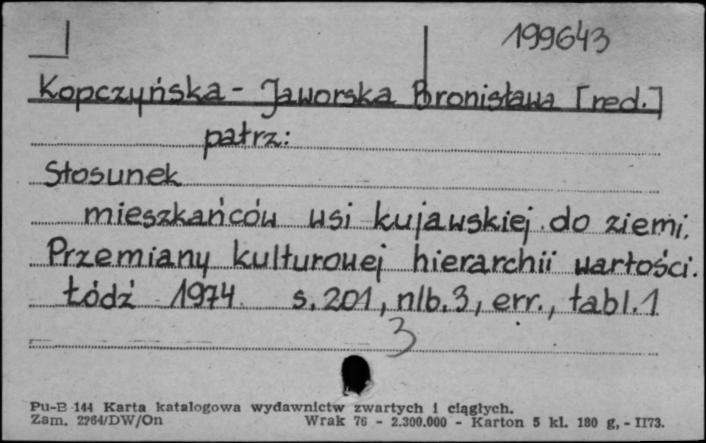 199643
Kopczyńska - Jaworska Bronisława [red.]
patrz:
Stosunek
mieszkańców wsi kujawskiej do ziemi.
Przemiany kulturowej hierarchii wartości.
Łódź 1974 s. 201, nlb. 3, err., tabl. 1
3
Pu-B 144 Karta katalogowa wydawnictw zwartych i ciągłych.
Zam. 2264/DW/On Wrak 76 - 2.300.000 - Karton 5 kl. 180 g, - II73.